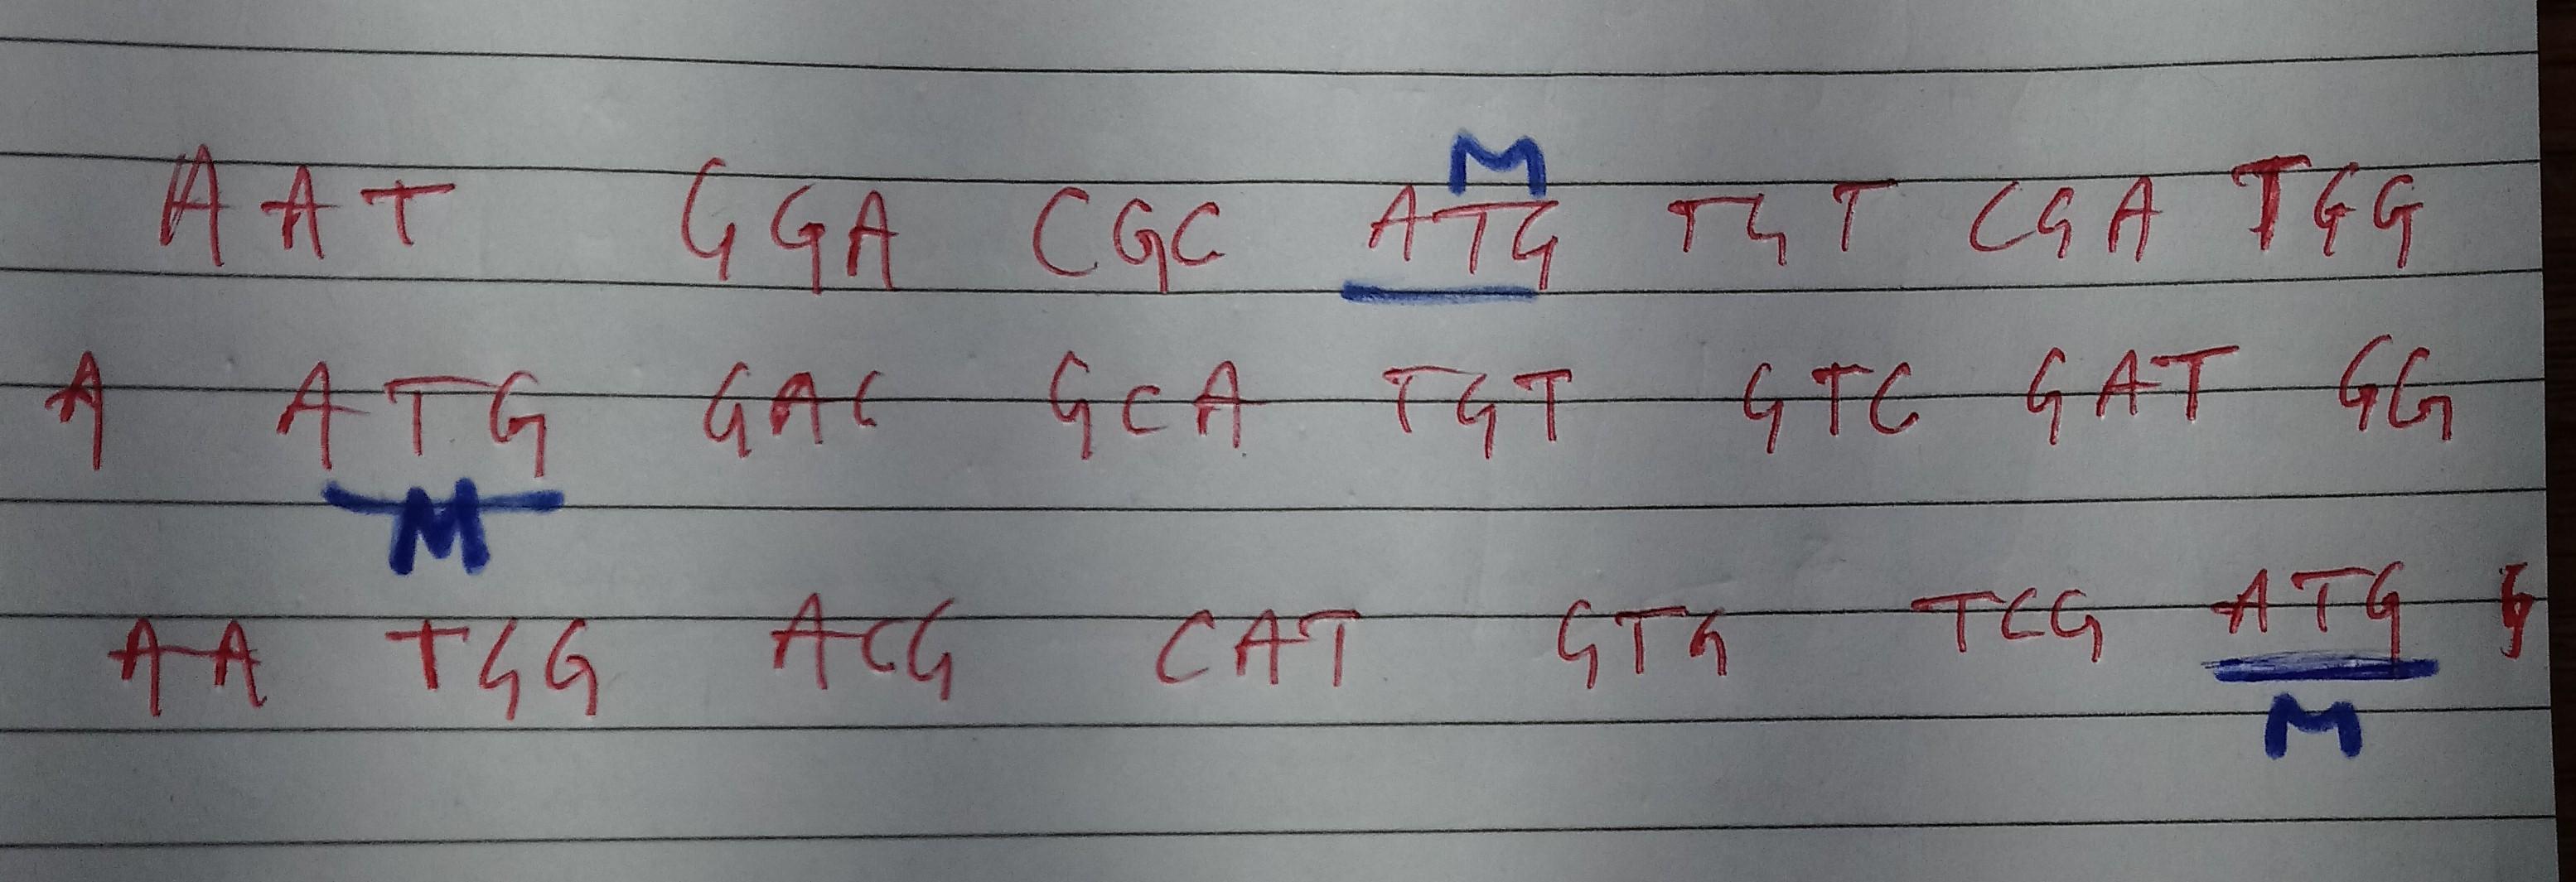 M
AAT GGA CGC ATG TGT CGA TGG
A ATG GAC GCA TGT GTC GAT GG
M
AA TGG ACG CAT GTG TCG ATG G
M